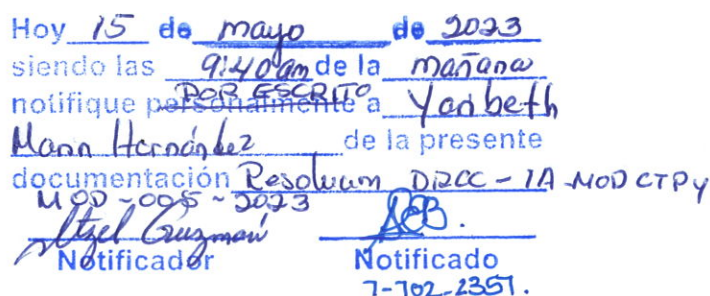 Hoy 15 de mayo de 2023
siendo las 9:40am de la mañana
notifique personalmente POR ESCRITO a Yaribeth
Mann Hernández de la presente
documentación Resolucion DRCC-IA-MOD CTPy
MOD-005-2023
Itzel Guzmán
Notificador Notificado
7-702-2351.